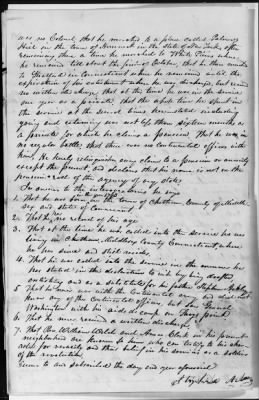 was no Colonel that he marched to a place called Palmers
Hill in the town of in the State of New York, after
remaining there a time he marched to White Plains where
he remained till about the first of October, that he then
to in Connecticut where he remained until the
expiration of his enlistment when he was discharged, but received
no written discharge that at the time he was in the service
one year as a private that the whole time he spent in
the service at the several times above stated including
going and returning does not less than sixteen months as
a private for which he claims a pension, that he was in
no regular battle; that there was no continental officers with
him, he hereby relinquishes every claim to a pension or annuity
except the present, and declares that his name is not on the
pension roll of the agency of any state
In answer to the interrogatories he says
1. That he was born in the town of Chatham, County of Middle
sex and state of Connecticut
2. That no record of his age
3. That at the time he was called into the service he was
living in Chatham, Middlesex County Connecticut, where
he has since and still resides
4. That he was called into the service in the manner he
has stated in the declaration to wit by being drafted,
enlisting and as a substitute for his father Stephen
5. That he there was with the continental but did not
know any of the continental officers, but saw Gen.
Washington with his aids
6. That he never received a written discharge
7. That Rev William Welch and Amos Clark in his present
neighborhood are known to him who can testify to his char-
acter for veracity and their belief in his services as a soldier
of the revolution
Sworn to and subscribed the day and year aforesaid
Stephen